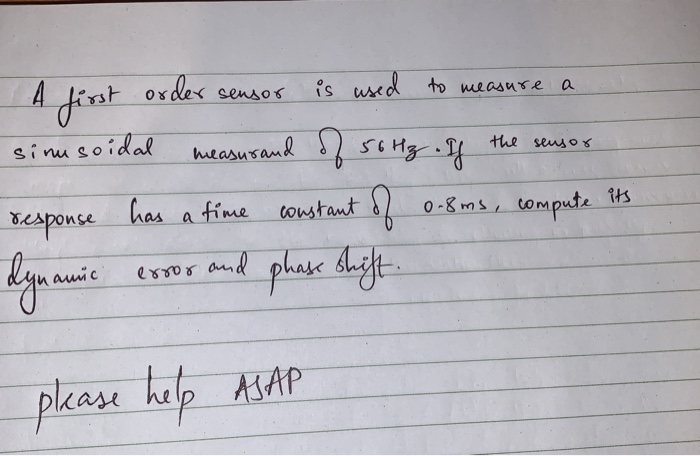 A first order sensor is used to measure a
sinusoidal measurand of 56Hz. If the sensor
response has a time constant of 0.8ms, compute its
dynamic error and phase shift.
please help ASAP